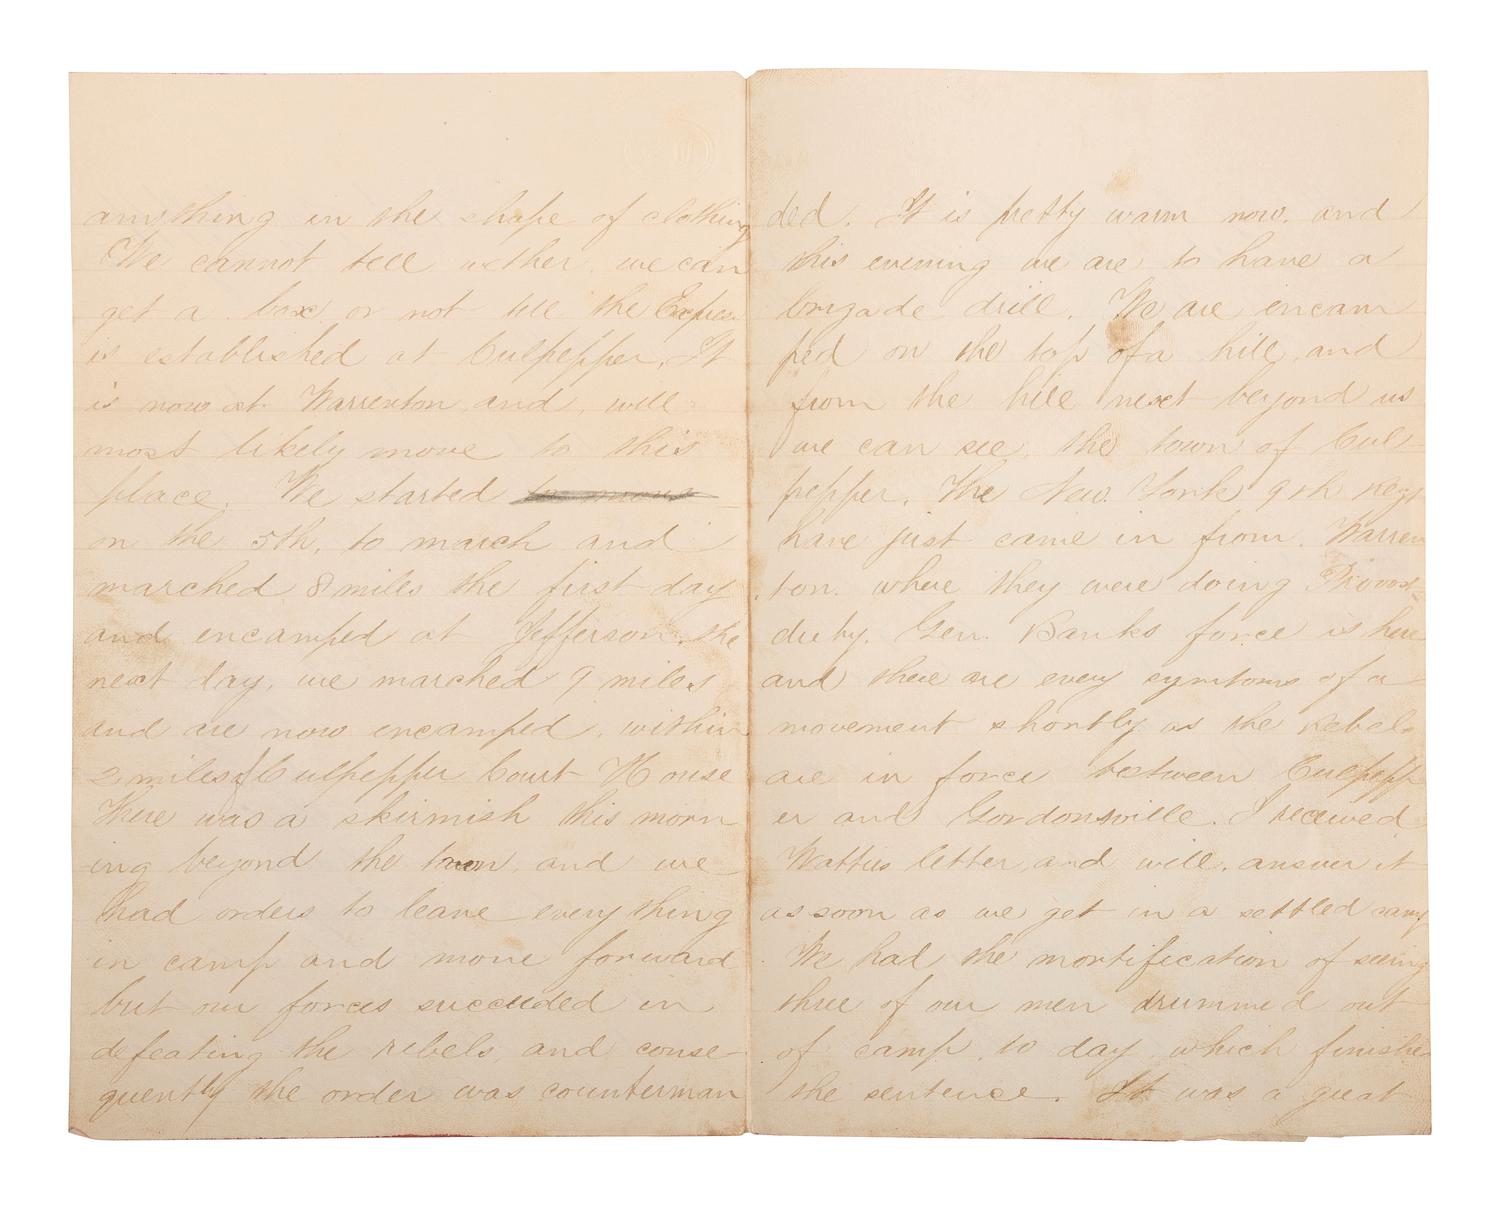 anything in the shape of clothing
We cannot tell wether we can
get a box or not till the Express
is established at Culpepper. It
is now at Warrenton and, will
most likely move to this
place. We started to move
on the 5th, to march and
marched 8 miles the first day
and encamped at Jefferson. the
next day, we marched 9 miles
and are now encamped within
2 miles of Culpepper Court House
There was a skirmish this morn
ing beyond the town, and we
had orders to leave everything
in camp and move forward
but our forces succeeded in
defeating the rebels, and conse-
quently the order was counterman
ded. It is pretty warm now, and
this evening we are to have a
brigade drill. We are encam
ped on the top of a hill, and
from the hill next beyond us
we can see, the town of Cul
pepper. The New York 9th Regt
have just came in from Warren
ton. where they were doing Provost
duty. Gen. Banks force is here
and there are every symtoms of a
movement shortly as the rebels
are in force between Culpepp
er and Gordonsville. I received
Watties letter, and will, answer it
as soon as we get in a settled camp
We had the mortification of seeing
three of our men drummed out
of camp, to day, which finishe
the sentence. It was a great